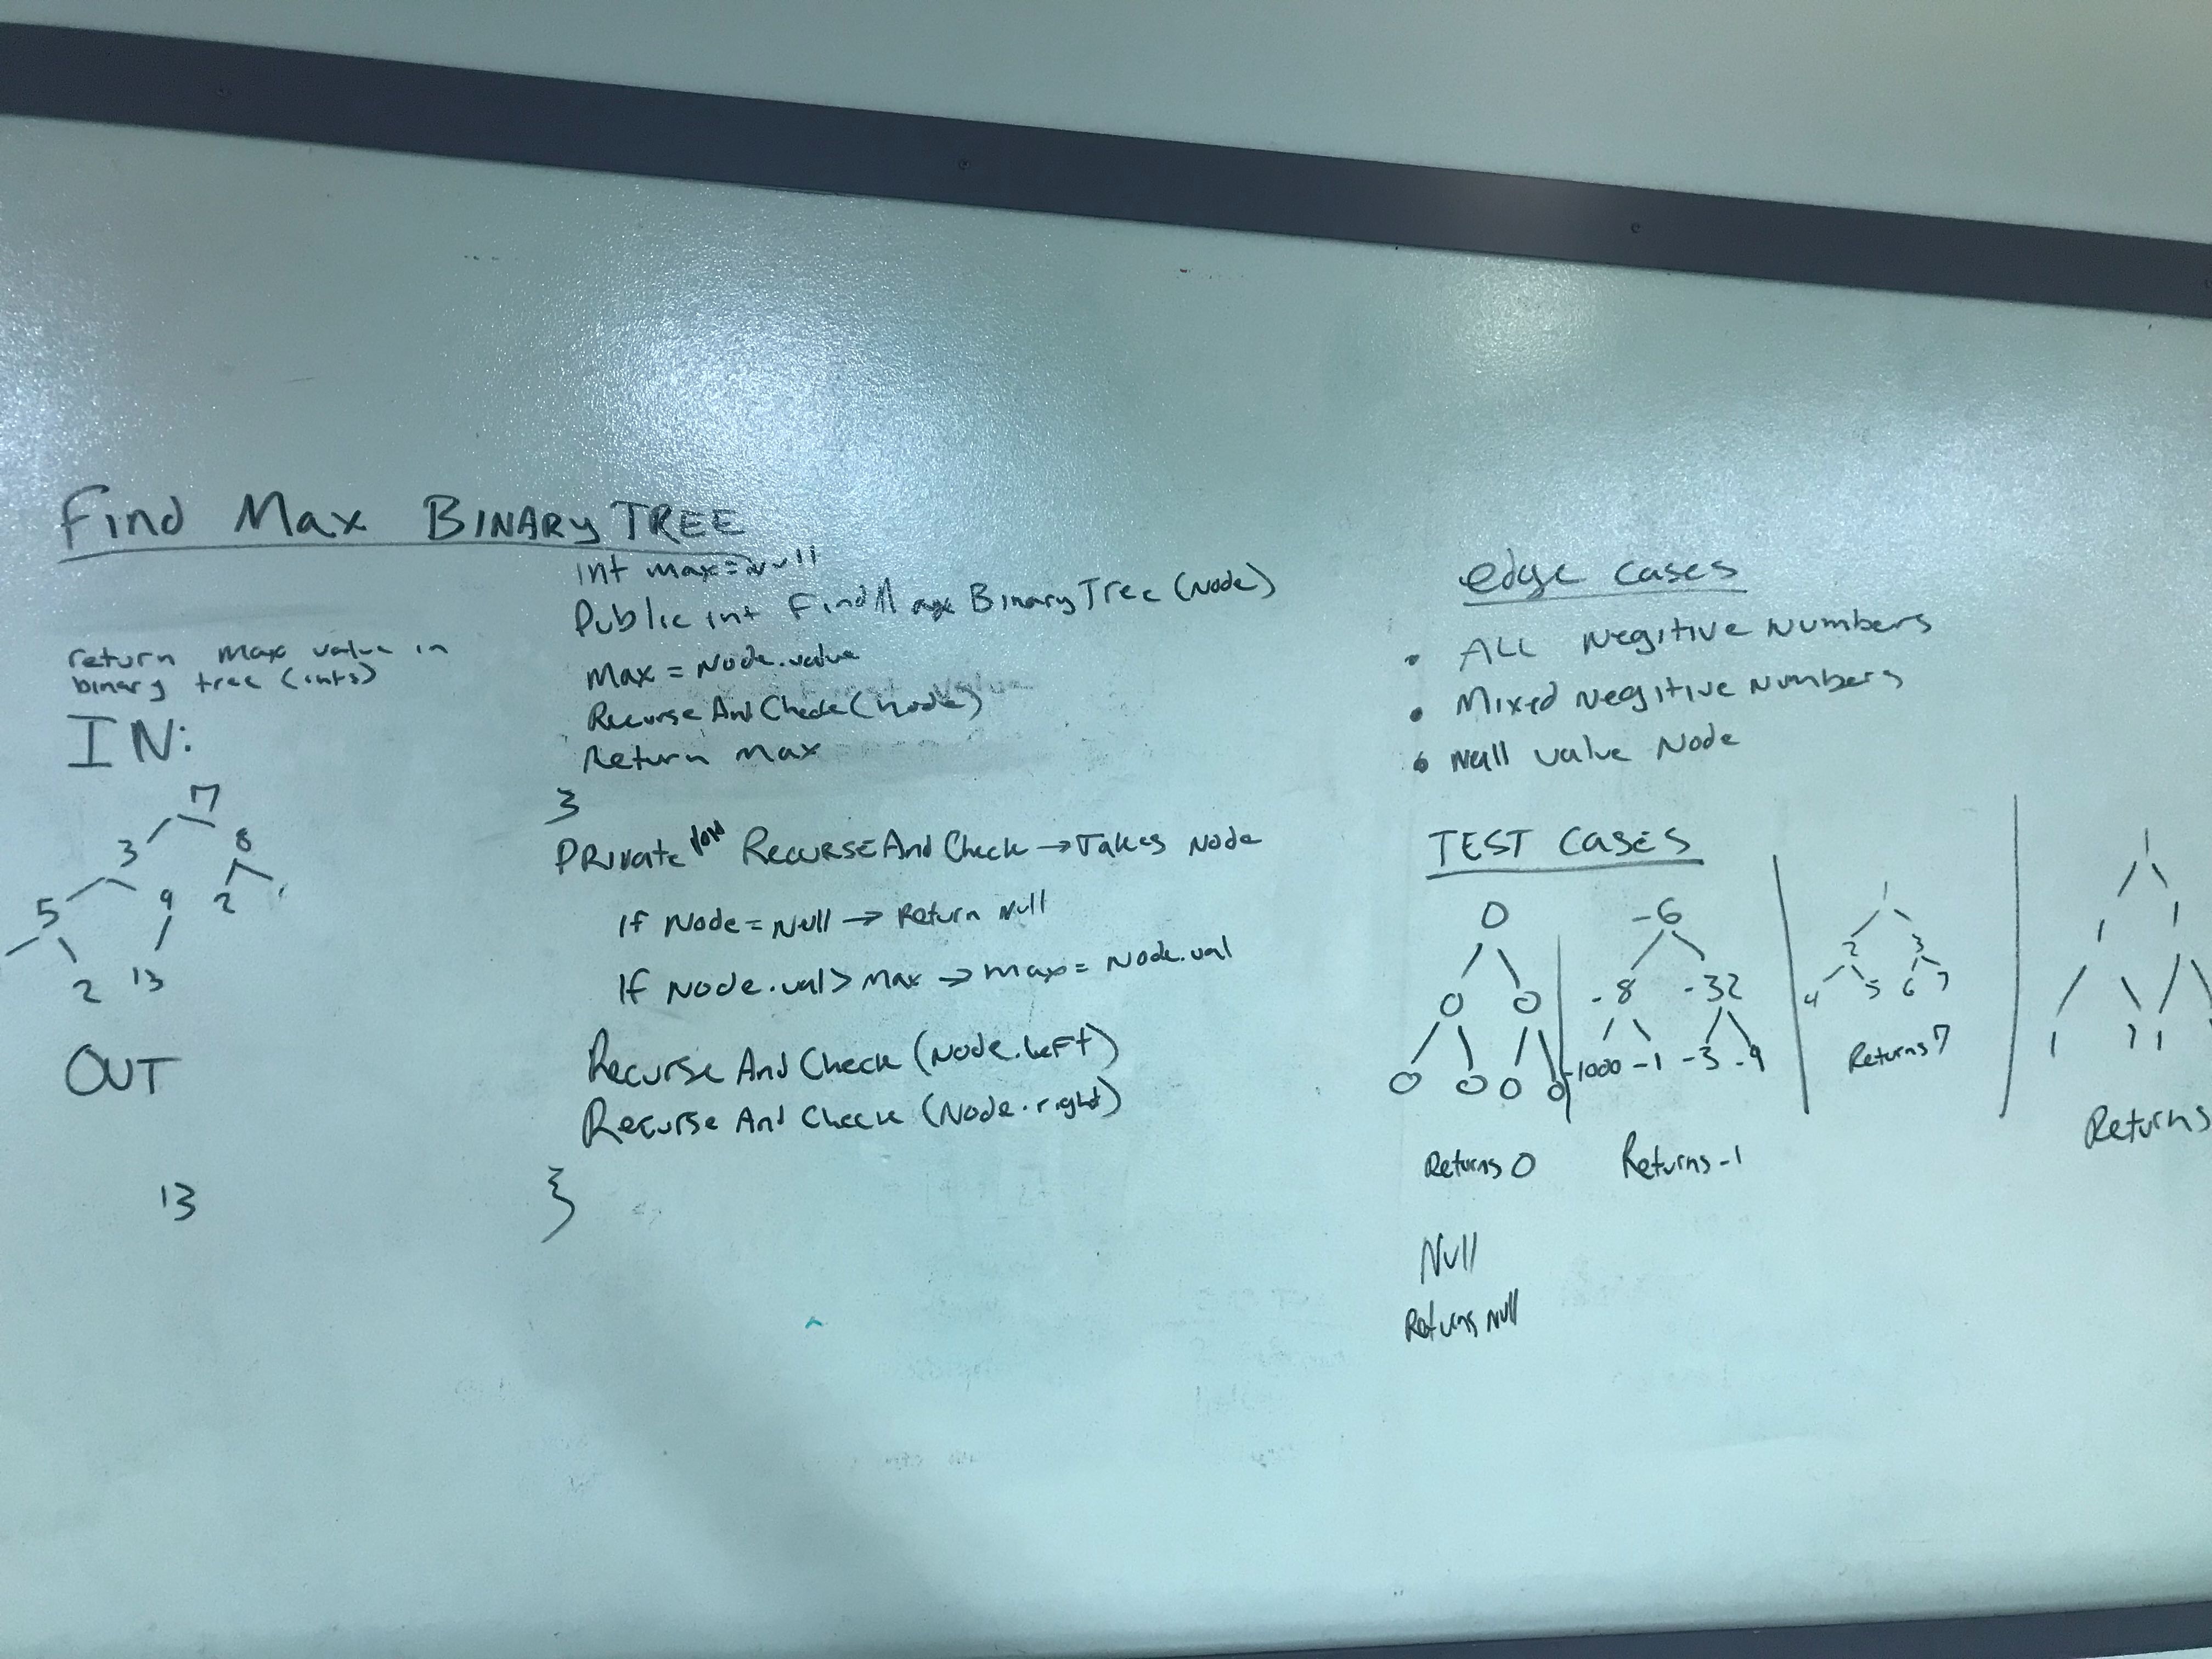 Find Max BINARY TREE
return max value in
binary tree (ints)
IN:
7
3 8
5 9 2 1
2 13
OUT
13
int max = Null
Public int FindMax BinaryTree (Node)
Max = Node.value
Recurse And Check (Node)
Return max
}
PRivate RecurseAnd Check → Takes Node
If Node = Null → Return Null
If Node.val > Max → max = Node.val
Recurse And Check (Node.Left)
Recurse And Check (Node.right)
}
edge cases
• ALL Negitive Numbers
• Mixed Negitive Numbers
• Null value Node
TEST CASES
0
0 0
0 0 0 0
Returns 0
-6
-8 -32
-1000 -1 -3 -9
Returns -1
1
2 3
4 5 6 7
Returns 7
1
1 1
1 1 1
Returns
Null
Returns Null